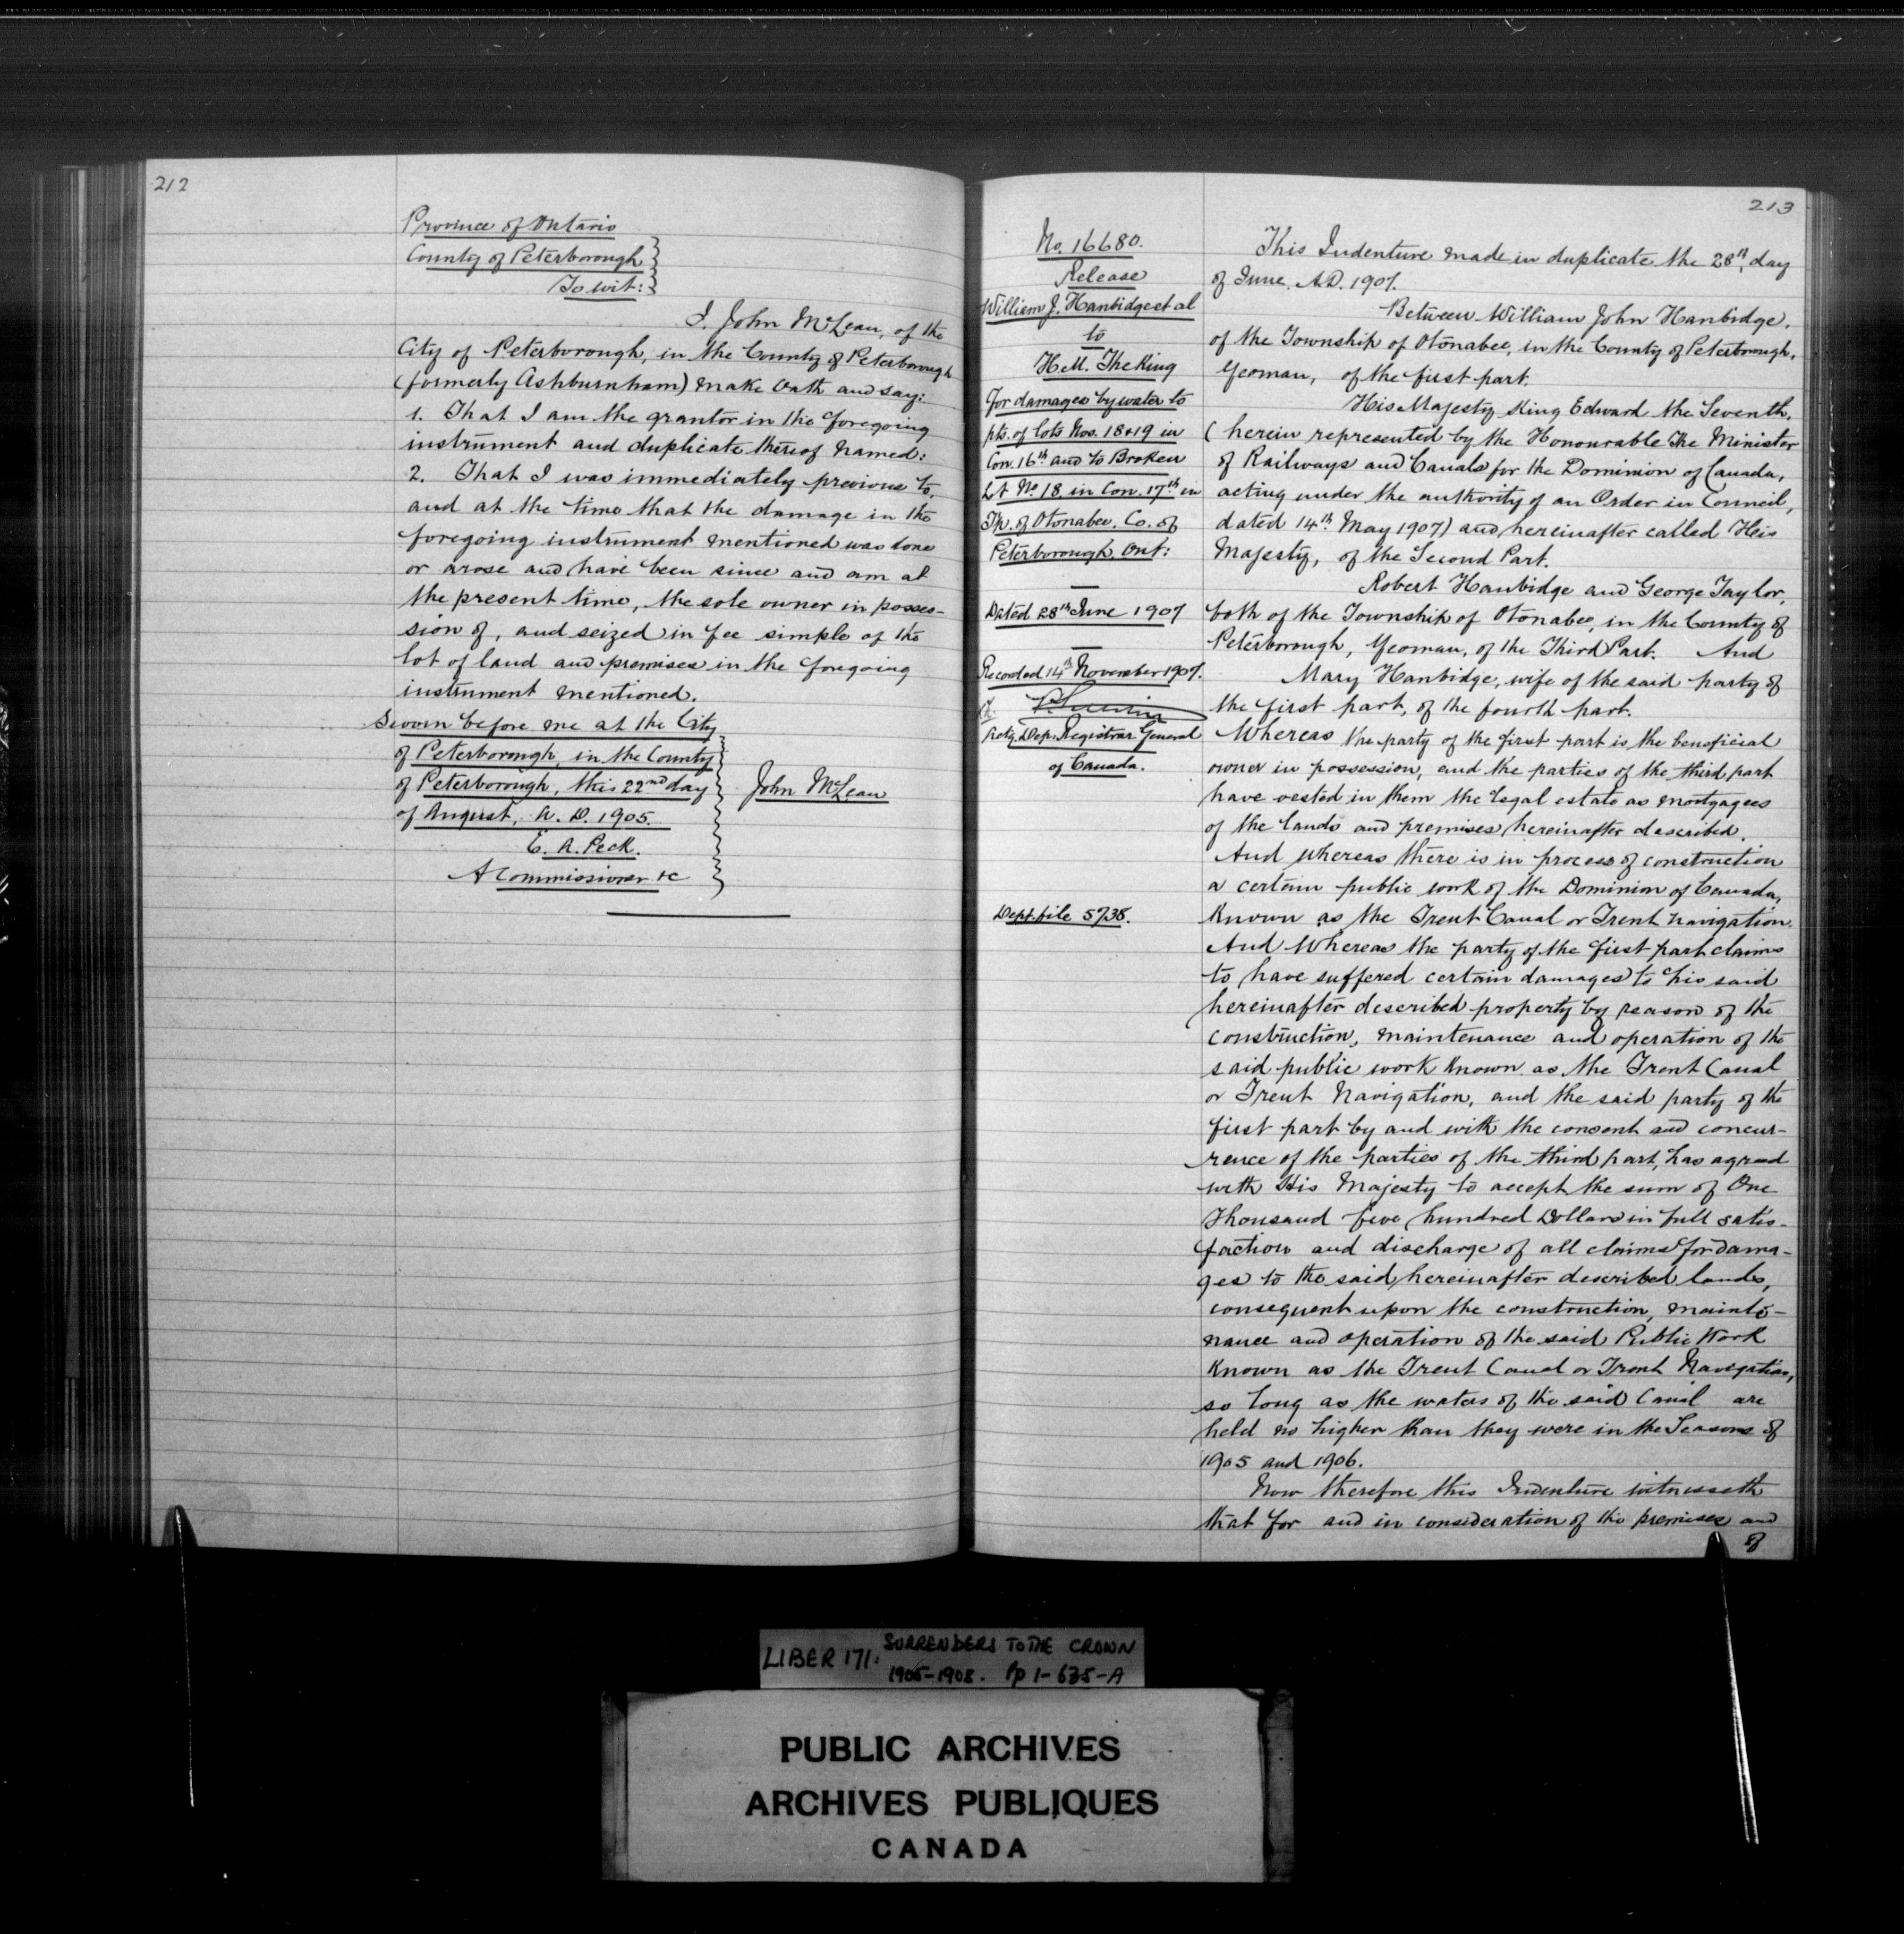 212
Province of Ontario
County of Peterborough
To wit:
I, John McLean, of the
City of Peterborough, in the County of Peterborough
(formerly Ashburnham) make oath and say:
1. That I am the grantor in the foregoing
instrument and duplicate thereof named:
2. That I was immediately previous to,
and at the time that the damage in the
foregoing instrument mentioned was done
or arose and have been since and am at
the present time, the sole owner in posses-
sion of, and seized in fee simple of the
lot of land and premises in the foregoing
instrument mentioned.
Sworn before me at the City
of Peterborough, in the County
of Peterborough, this 22nd day
of August, A. D. 1905.
E. A. Peck.
A Commissioner &c
John McLean
213
No. 16680.
Release
William J. Hanbidge et al
to
H.M. The King
for damages by water to
pts. of lots Nos. 18 & 19 in
Con. 16th and to Broken
Lt No. 18 in Con. 17th in
Tp. of Otonabee, Co. of
Peterborough, Ont:
Dated 28th June 1907
Recorded 14th November 1907.
Actg. Dep. Registrar General
of Canada.
Dept. file 5738.
This Indenture made in duplicate the 28th day
of June A.D. 1907.
Between William John Hanbidge,
of the Township of Otonabee, in the County of Peterborough,
Yeoman, of the first part.
His Majesty King Edward the Seventh,
(herein represented by the Honourable The Minister
of Railways and Canals for the Dominion of Canada,
acting under the authority of an Order in Council,
dated 14th May 1907) and hereinafter called His
Majesty, of the Second Part.
Robert Hanbidge and George Taylor,
both of the Township of Otonabee, in the County of
Peterborough, Yeoman, of the Third Part. And
Mary Hanbidge, wife of the said party of
the first part, of the fourth part.
Whereas the party of the first part is the beneficial
owner in possession, and the parties of the third part
have vested in them the legal estate as mortgagees
of the lands and premises hereinafter described.
And whereas there is in process of construction
a certain public work of the Dominion of Canada,
known as the Trent Canal or Trent navigation.
And Whereas the party of the first part claims
to have suffered certain damages to his said
hereinafter described property by reason of the
construction, maintenance and operation of the
said public work known as the Trent Canal
or Trent Navigation, and the said party of the
first part by and with the consent and concur-
rence of the parties of the third part, has agreed
with His Majesty to accept the sum of One
Thousand five hundred Dollars in full satis-
faction and discharge of all claims for dama-
ges to the said hereinafter described lands,
consequent upon the construction, mainte-
nance and operation of the said Public Work
known as the Trent Canal or Trent Navigation,
so long as the waters of the said Canal are
held no higher than they were in the Seasons of
1905 and 1906.
Now therefore this Indenture witnesseth
that for and in consideration of the premises and
of
LIBER 171: SURRENDERS TO THE CROWN
1905-1908. Pp 1-635-A
PUBLIC ARCHIVES
ARCHIVES PUBLIQUES
CANADA